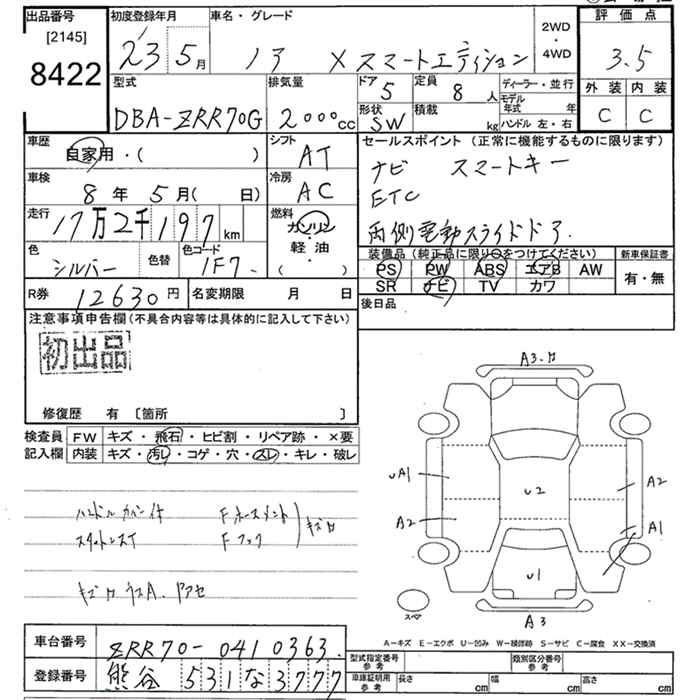 出品番号 初度登録年月 車名・グレード 2WD・4WD 評価点
[2145]
8422
23年 5月 ノア X スマートエディション 3.5
型式 排気量 ドア 5 定員 8人 ディーラー・並行 外装 内装
DBA-ZRR70G 2000cc 形状 SW 積載 kg モデル年式 年 C C
ハンドル 左・右
車歴 自家用・( ) シフト AT セールスポイント(正常に機能するものに限ります)
車検 8年 5月( 日) 冷房 AC ナビ スマートキー
ETC
走行 17万2千197km 燃料 ガソリン 軽油 ( ) 両側電動スライドドア.
色 シルバー 色替 色コード 1F7. 装備品(純正品に限り○をつけてください) 新車保証書
PS PW ABS エアB AW 有・無
SR ナビ TV カワ
R券 12630円 名変期限 月 日 後日品
注意事項申告欄(不具合内容等は具体的に記入して下さい)
初出品
修復歴 有 〔箇所 〕
検査員記入欄 FW キズ・飛石・ヒビ割・リペア跡・×要
内装 キズ・汚レ・コゲ・穴・スレ・キレ・破レ
ハンドルカバー付
キズ
A3
UA1 A2
U2
A2 A1
U1
スペア
A3
A-キズ E-エクボ U-凹み W-補修跡 S-サビ C-腐食 XX-交換済
車台番号 ZRR70-0410363.
登録番号 熊谷 531 な 3777
型式指定番号参考 類別区分番号参考
車庫証明用参考 長さ cm 幅 cm 高さ cm